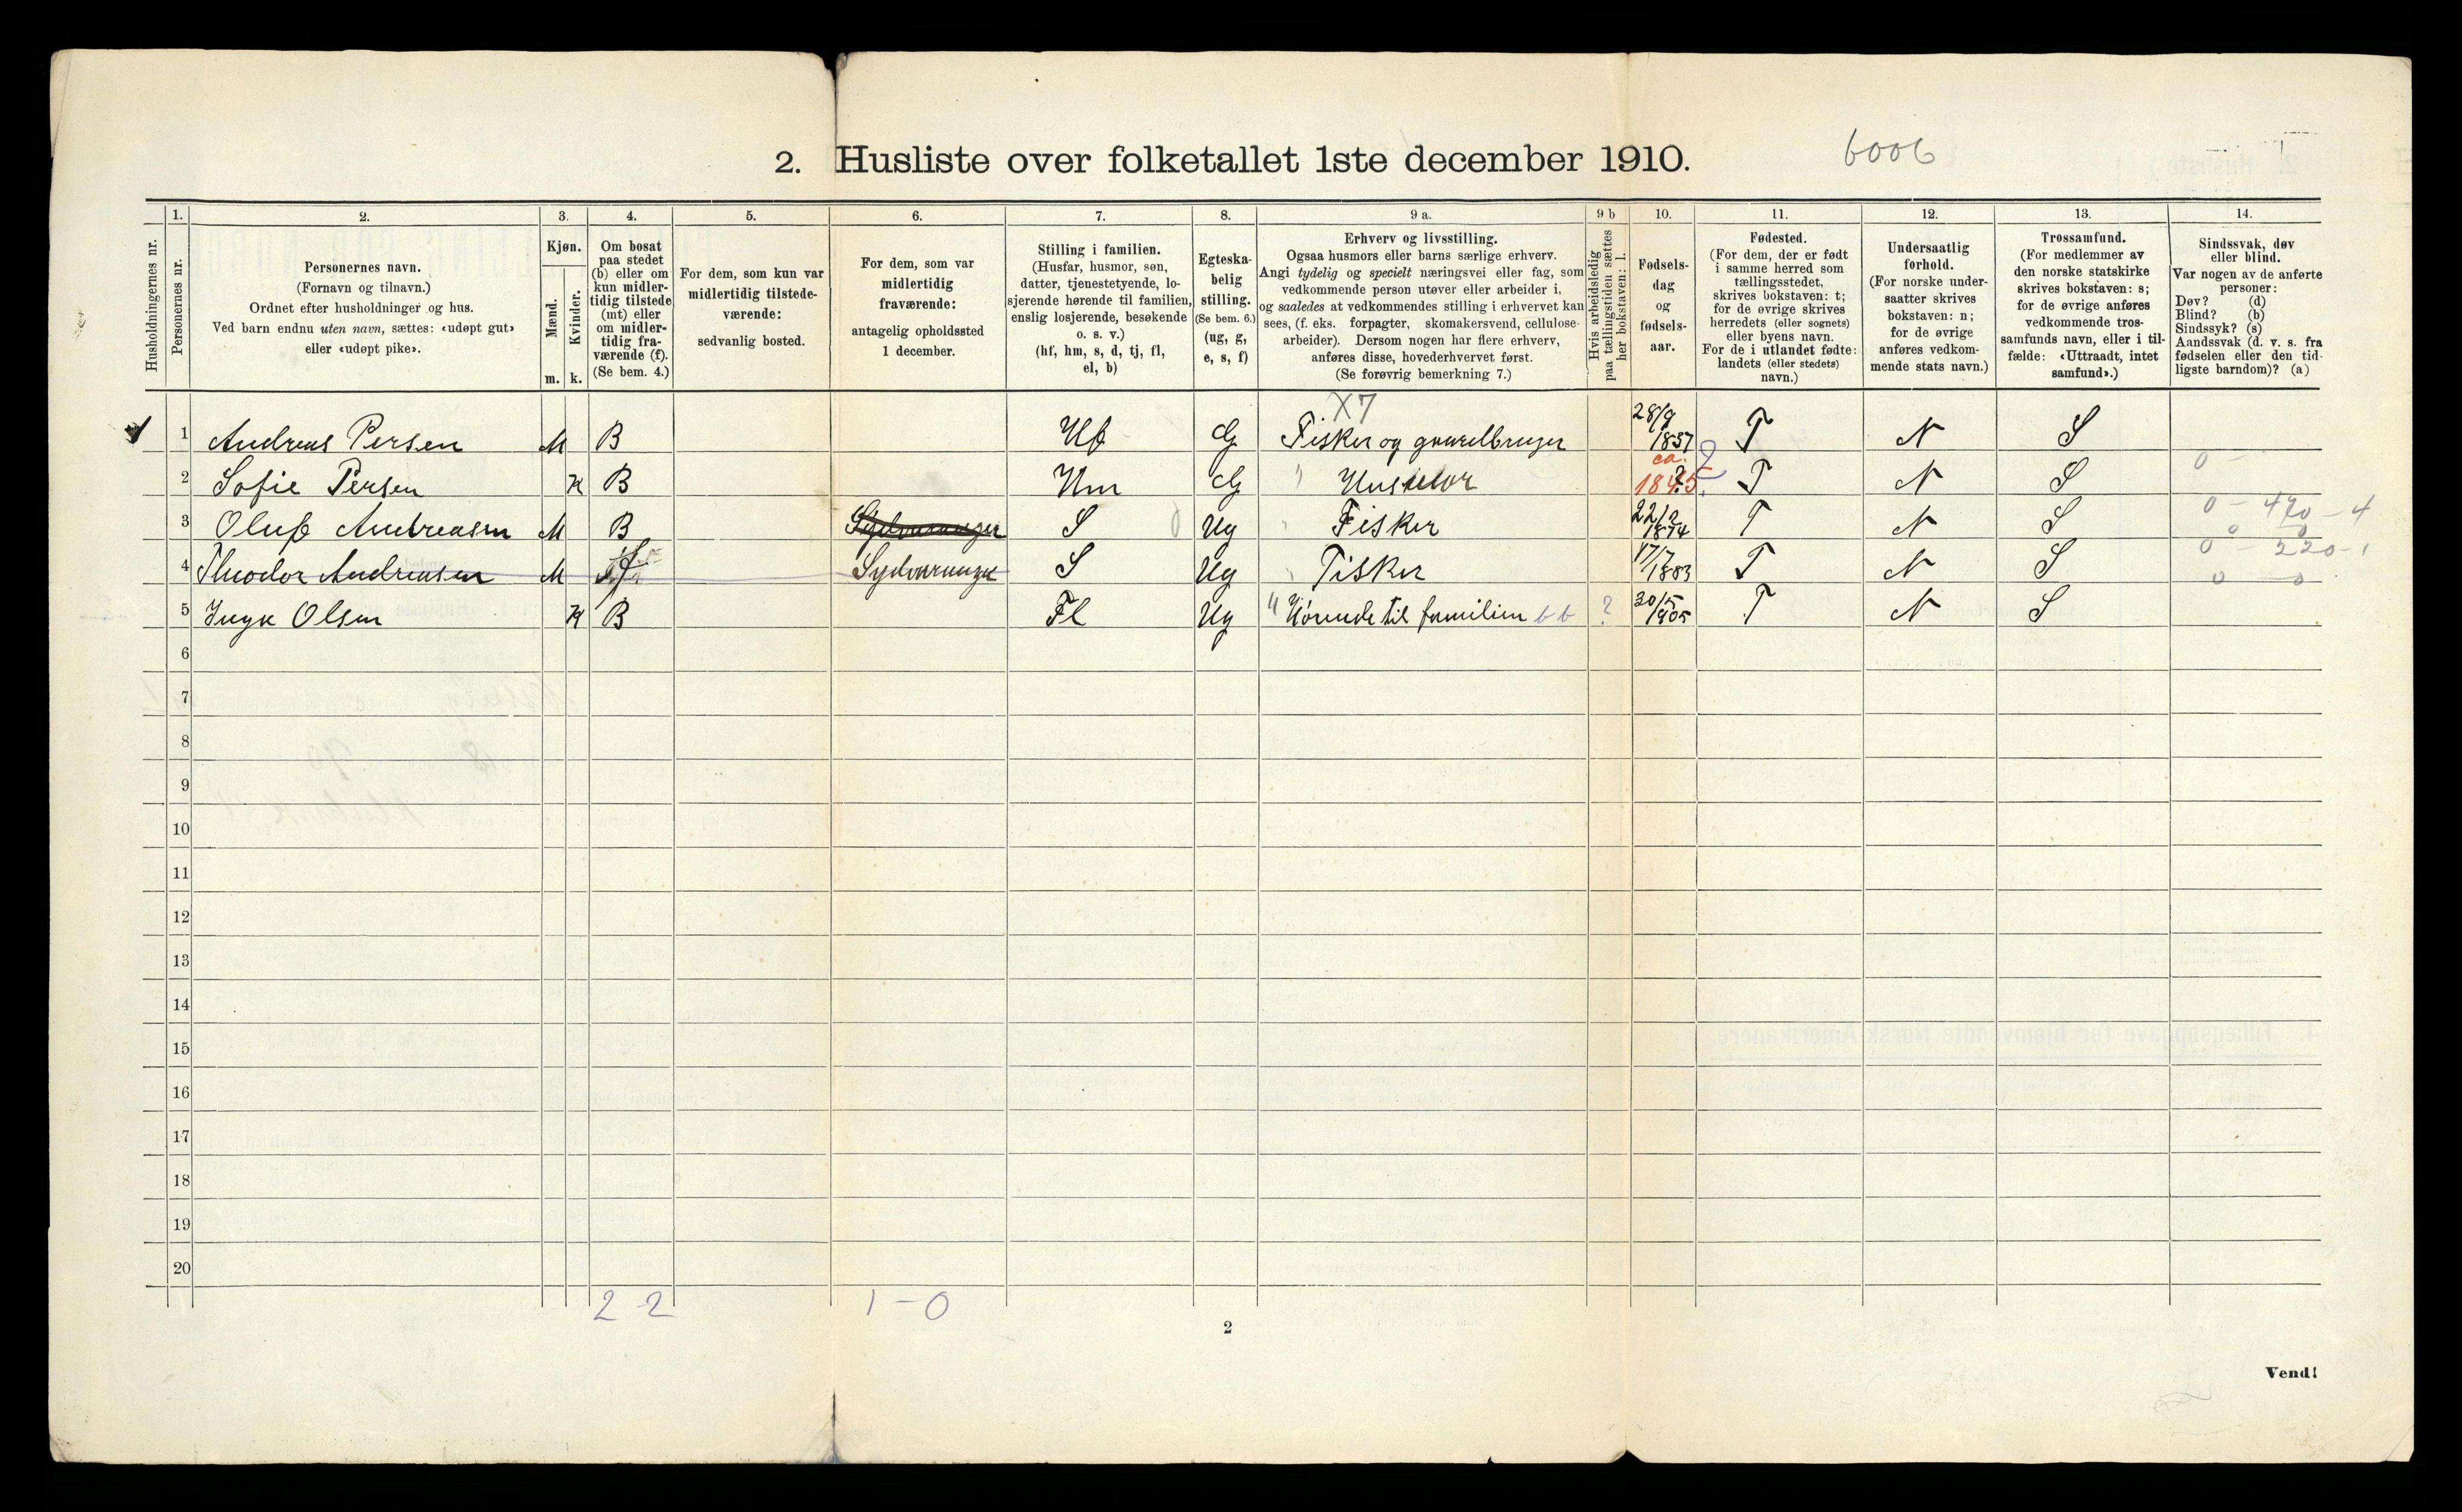 2. Husliste over folketallet 1ste december 1910.
6006
Husholdningernes nr.
1.
Personernes nr.
2.
Personernes navn.
(Fornavn og tilnavn.)
Ordnet efter husholdninger og hus.
Ved barn endnu uten navn, sættes: «udøpt gut»
eller «udøpt pike».
3.
Kjøn.
Mænd.
Kvinder.
m. k.
4.
Om bosat
paa stedet
(b) eller om
kun midler-
tidig tilstede
(mt) eller
om midler-
tidig fra-
værende (f).
(Se bem. 4.)
5.
For dem, som kun var
midlertidig tilstede-
værende:
sedvanlig bosted.
6.
For dem, som var
midlertidig
fraværende:
antagelig opholdssted
1 december.
7.
Stilling i familien.
(Husfar, husmor, søn,
datter, tjenestetyende, lo-
sjerende hørende til familien,
enslig losjerende, besøkende
o. s. v.)
(hf, hm, s, d, tj, fl,
el, b)
8.
Egteska-
belig
stilling.
(Se bem. 6.)
(ug, g,
e, s, f)
9 a.
Erhverv og livsstilling.
Ogsaa husmors eller barns særlige erhverv.
Angi tydelig og specielt næringsvei eller fag, som
vedkommende person utøver eller arbeider i,
og saaledes at vedkommendes stilling i erhvervet kan
sees, (f. eks. forpagter, skomakersvend, cellulose-
arbeider). Dersom nogen har flere erhverv,
anføres disse, hovederhvervet først.
(Se forøvrig bemerkning 7.)
9 b
Hvis arbeidsledig
paa tællingstiden sættes
her bokstaven: l.
10.
Fødsels-
dag
og
fødsels-
aar.
11.
Fødested.
(For dem, der er født
i samme herred som
tællingsstedet,
skrives bokstaven: t;
for de øvrige skrives
herredets (eller sognets)
eller byens navn.
For de i utlandet fødte:
landets (eller stedets)
navn.)
12.
Undersaatlig
forhold.
(For norske under-
saatter skrives
bokstaven: n;
for de øvrige
anføres vedkom-
mende stats navn.)
13.
Trossamfund.
(For medlemmer av
den norske statskirke
skrives bokstaven: s;
for de øvrige anføres
vedkommende tros-
samfunds navn, eller i til-
fælde: «Uttraadt, intet
samfund».)
14.
Sindssvak, døv
eller blind.
Var nogen av de anførte
personer:
Døv? (d)
Blind? (b)
Sindssyk? (s)
Aandssvak (d. v. s. fra
fødselen eller den tid-
ligste barndom)? (a)
X7
1 Andreas Persen M B Hf G Fisker og gaardbruger 28/9 1837 T N S
2 Sofie Persen K B Hm G Husmor ca. 1845 ? T N S 0 -
3 Oluf Andreasen M B Sydvaranger S Ug Fisker 22/2 1874 T N S 0 - 470 - 4
0 0
4 Theodor Andreasen M F Sydvaranger S Ug Fisker 17/7 1883 T N S 0 - 220 - 1
0 0
5 Inga Olsen K B Fl Ug " Hørende til familien b b ? 30/5 1905 T N S
6
7
8
9
10
11
12
13
14
15
16
17
18
19
20
2 2 1 - 0
2
Vend!